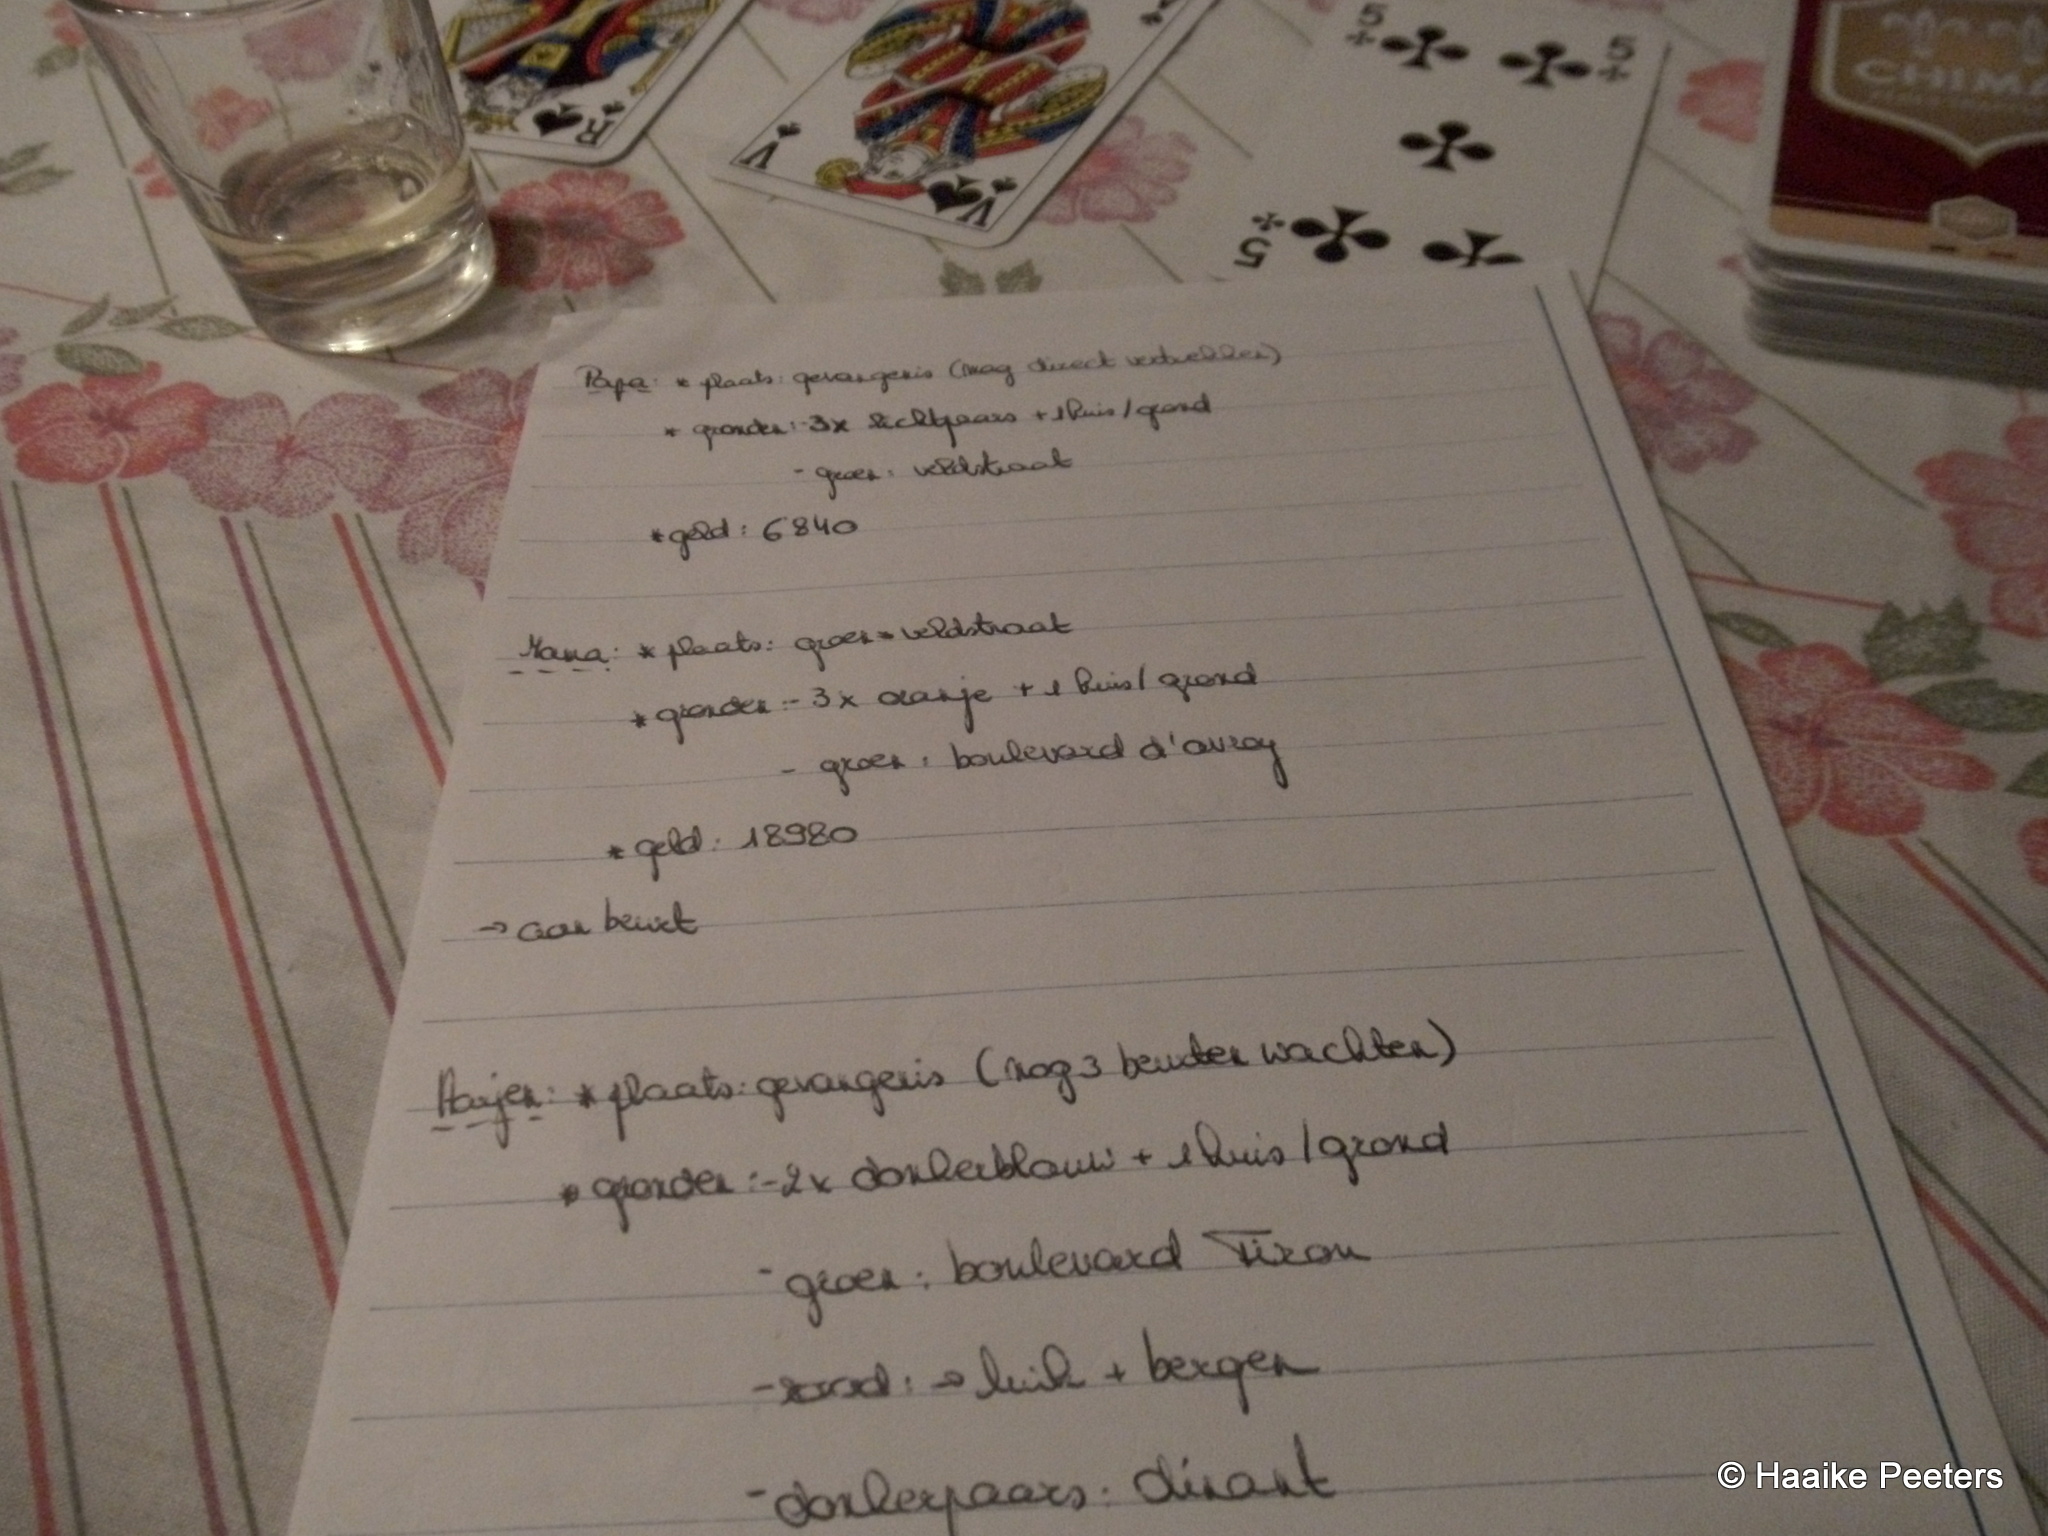 R
V
V
5
5
5
CHIMA
Papa: * plaats: gevangenis (mag direct vertrekken)
* gronden: - 3x lichtpaars + 1 huis / grond
- groen: veldstraat
* geld: 6840
Mama: * plaats: groen veldstraat
* gronden: - 3x oranje + 1 huis / grond
- groen: boulevard d'avroy
* geld: 18980
→ aan beurt
* plaats: gevangenis (nog 3 beurten wachten)
* gronden: - 2x donkerblauw + 1 huis / grond
- groen: boulevard Tiron
- rood: → luik + bergen
- donkerpaars: dinant
© Haaike Peeters